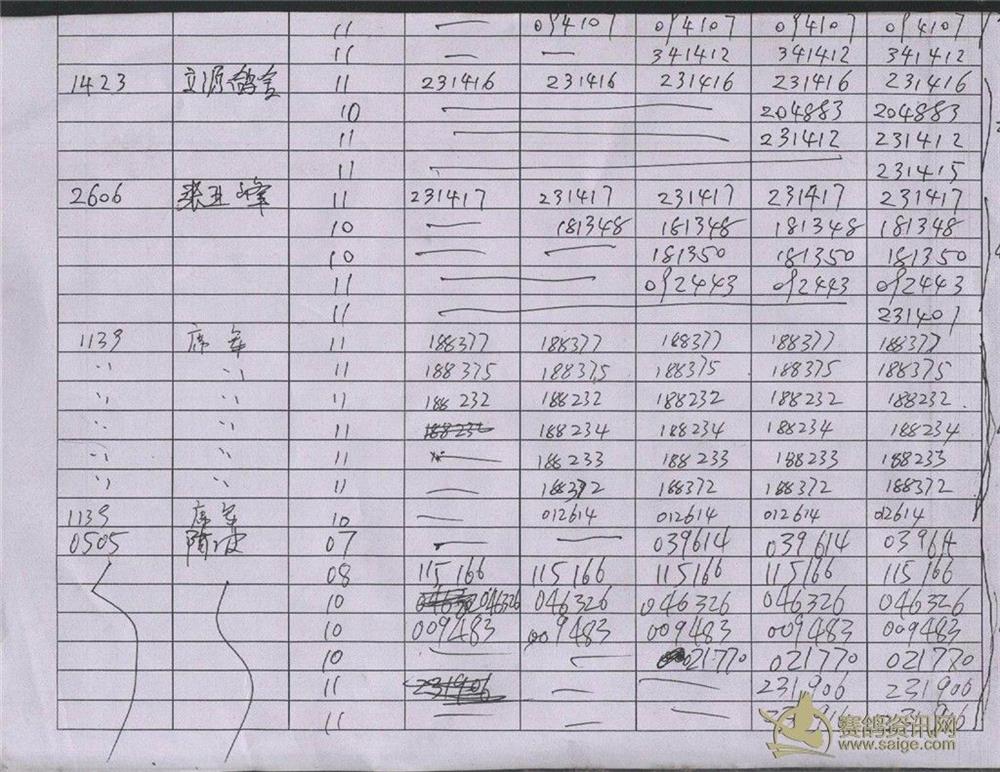 11 — 094107 094107 094107 094107
11 — — 341412 341412 341412
1423 立源鸽舍 11 231416 231416 231416 231416 231416
10 — 204883 204883
11 — 231412 231412
11 — 231415
2606 11 231417 231417 231417 231417 231417
10 — 181348 181348 181348 181348
10 — — 181350 181350 181350
11 — 092443 092443 092443
11 — 231401
1139 席军 11 188377 188377 188377 188377 188377
〃 〃 11 188375 188375 188375 188375 188375
〃 〃 11 188232 188232 188232 188232 188232
〃 〃 11 188234 188234 188234 188234
〃 〃 11 — 188233 188233 188233 188233
〃 〃 11 — 188372 188372 188372 188372
1139 席军 10 — 012614 012614 012614 012614
0505 07 — — 039614 039614 039614
08 115166 115166 115166 115166 115166
10 046326 046326 046326 046326 046326
10 009483 009483 009483 009483 009483
10 — — 021770 021770 021770
11 231906 — — 231906 231906
11 — — —
赛鸽资讯网
www.saige.com